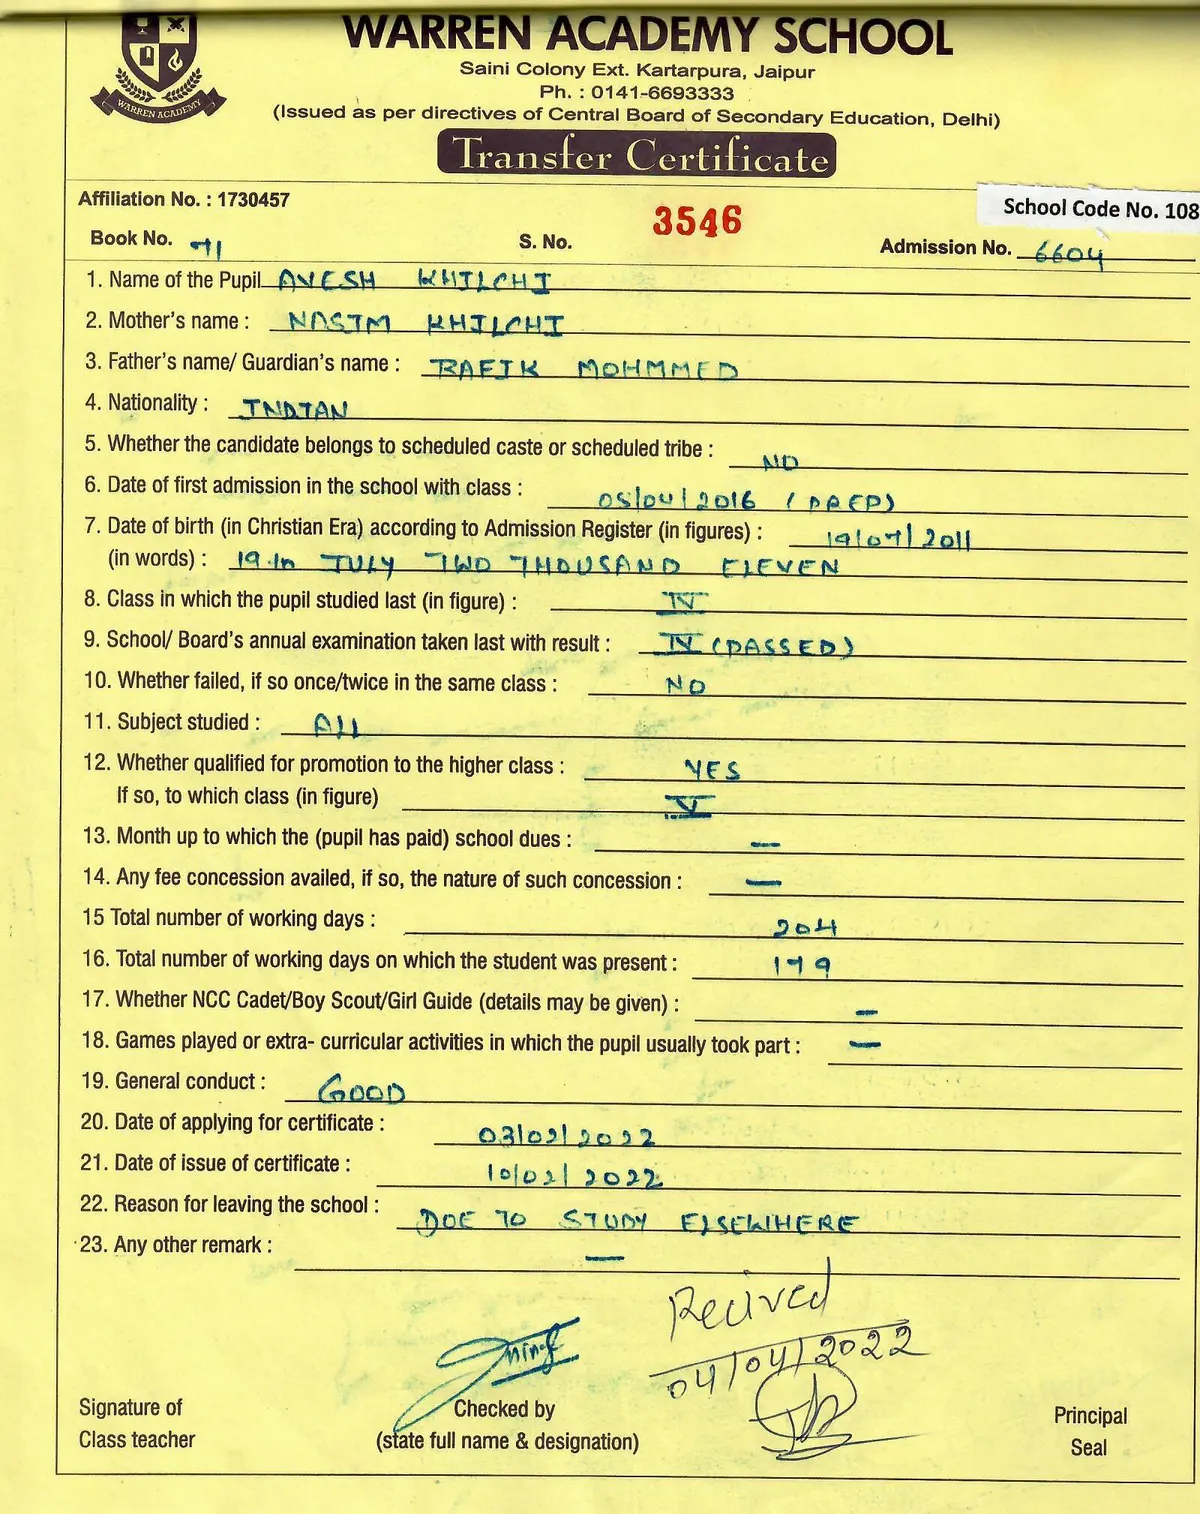 WARREN ACADEMY
WARREN ACADEMY SCHOOL
Saini Colony Ext. Kartarpura, Jaipur
Ph. : 0141-6693333
(Issued as per directives of Central Board of Secondary Education, Delhi)
Transfer Certificate
Affiliation No. : 1730457
School Code No. 108
Book No. 71 S. No. 3546 Admission No. 6604
1. Name of the Pupil AVESH KHILCHI
2. Mother's name : NASIM KHILCHI
3. Father's name/ Guardian's name : RAFIK MOHMMED
4. Nationality : INDIAN
5. Whether the candidate belongs to scheduled caste or scheduled tribe : NO
6. Date of first admission in the school with class : 05/04/2016 (PREP)
7. Date of birth (in Christian Era) according to Admission Register (in figures) : 19/07/2011
(in words) : 19th JULY TWO THOUSAND ELEVEN
8. Class in which the pupil studied last (in figure) : IV
9. School/ Board's annual examination taken last with result : IV (PASSED)
10. Whether failed, if so once/twice in the same class : NO
11. Subject studied : All
12. Whether qualified for promotion to the higher class : YES
If so, to which class (in figure) V
13. Month up to which the (pupil has paid) school dues : —
14. Any fee concession availed, if so, the nature of such concession : —
15 Total number of working days : 204
16. Total number of working days on which the student was present : 179
17. Whether NCC Cadet/Boy Scout/Girl Guide (details may be given) : —
18. Games played or extra- curricular activities in which the pupil usually took part : —
19. General conduct : GOOD
20. Date of applying for certificate : 03/02/2022
21. Date of issue of certificate : 10/02/2022
22. Reason for leaving the school : DOE TO STUDY ELSEWHERE
23. Any other remark : —
Recived
04/04/2022
Signature of
Class teacher
Checked by
(state full name & designation)
Principal
Seal